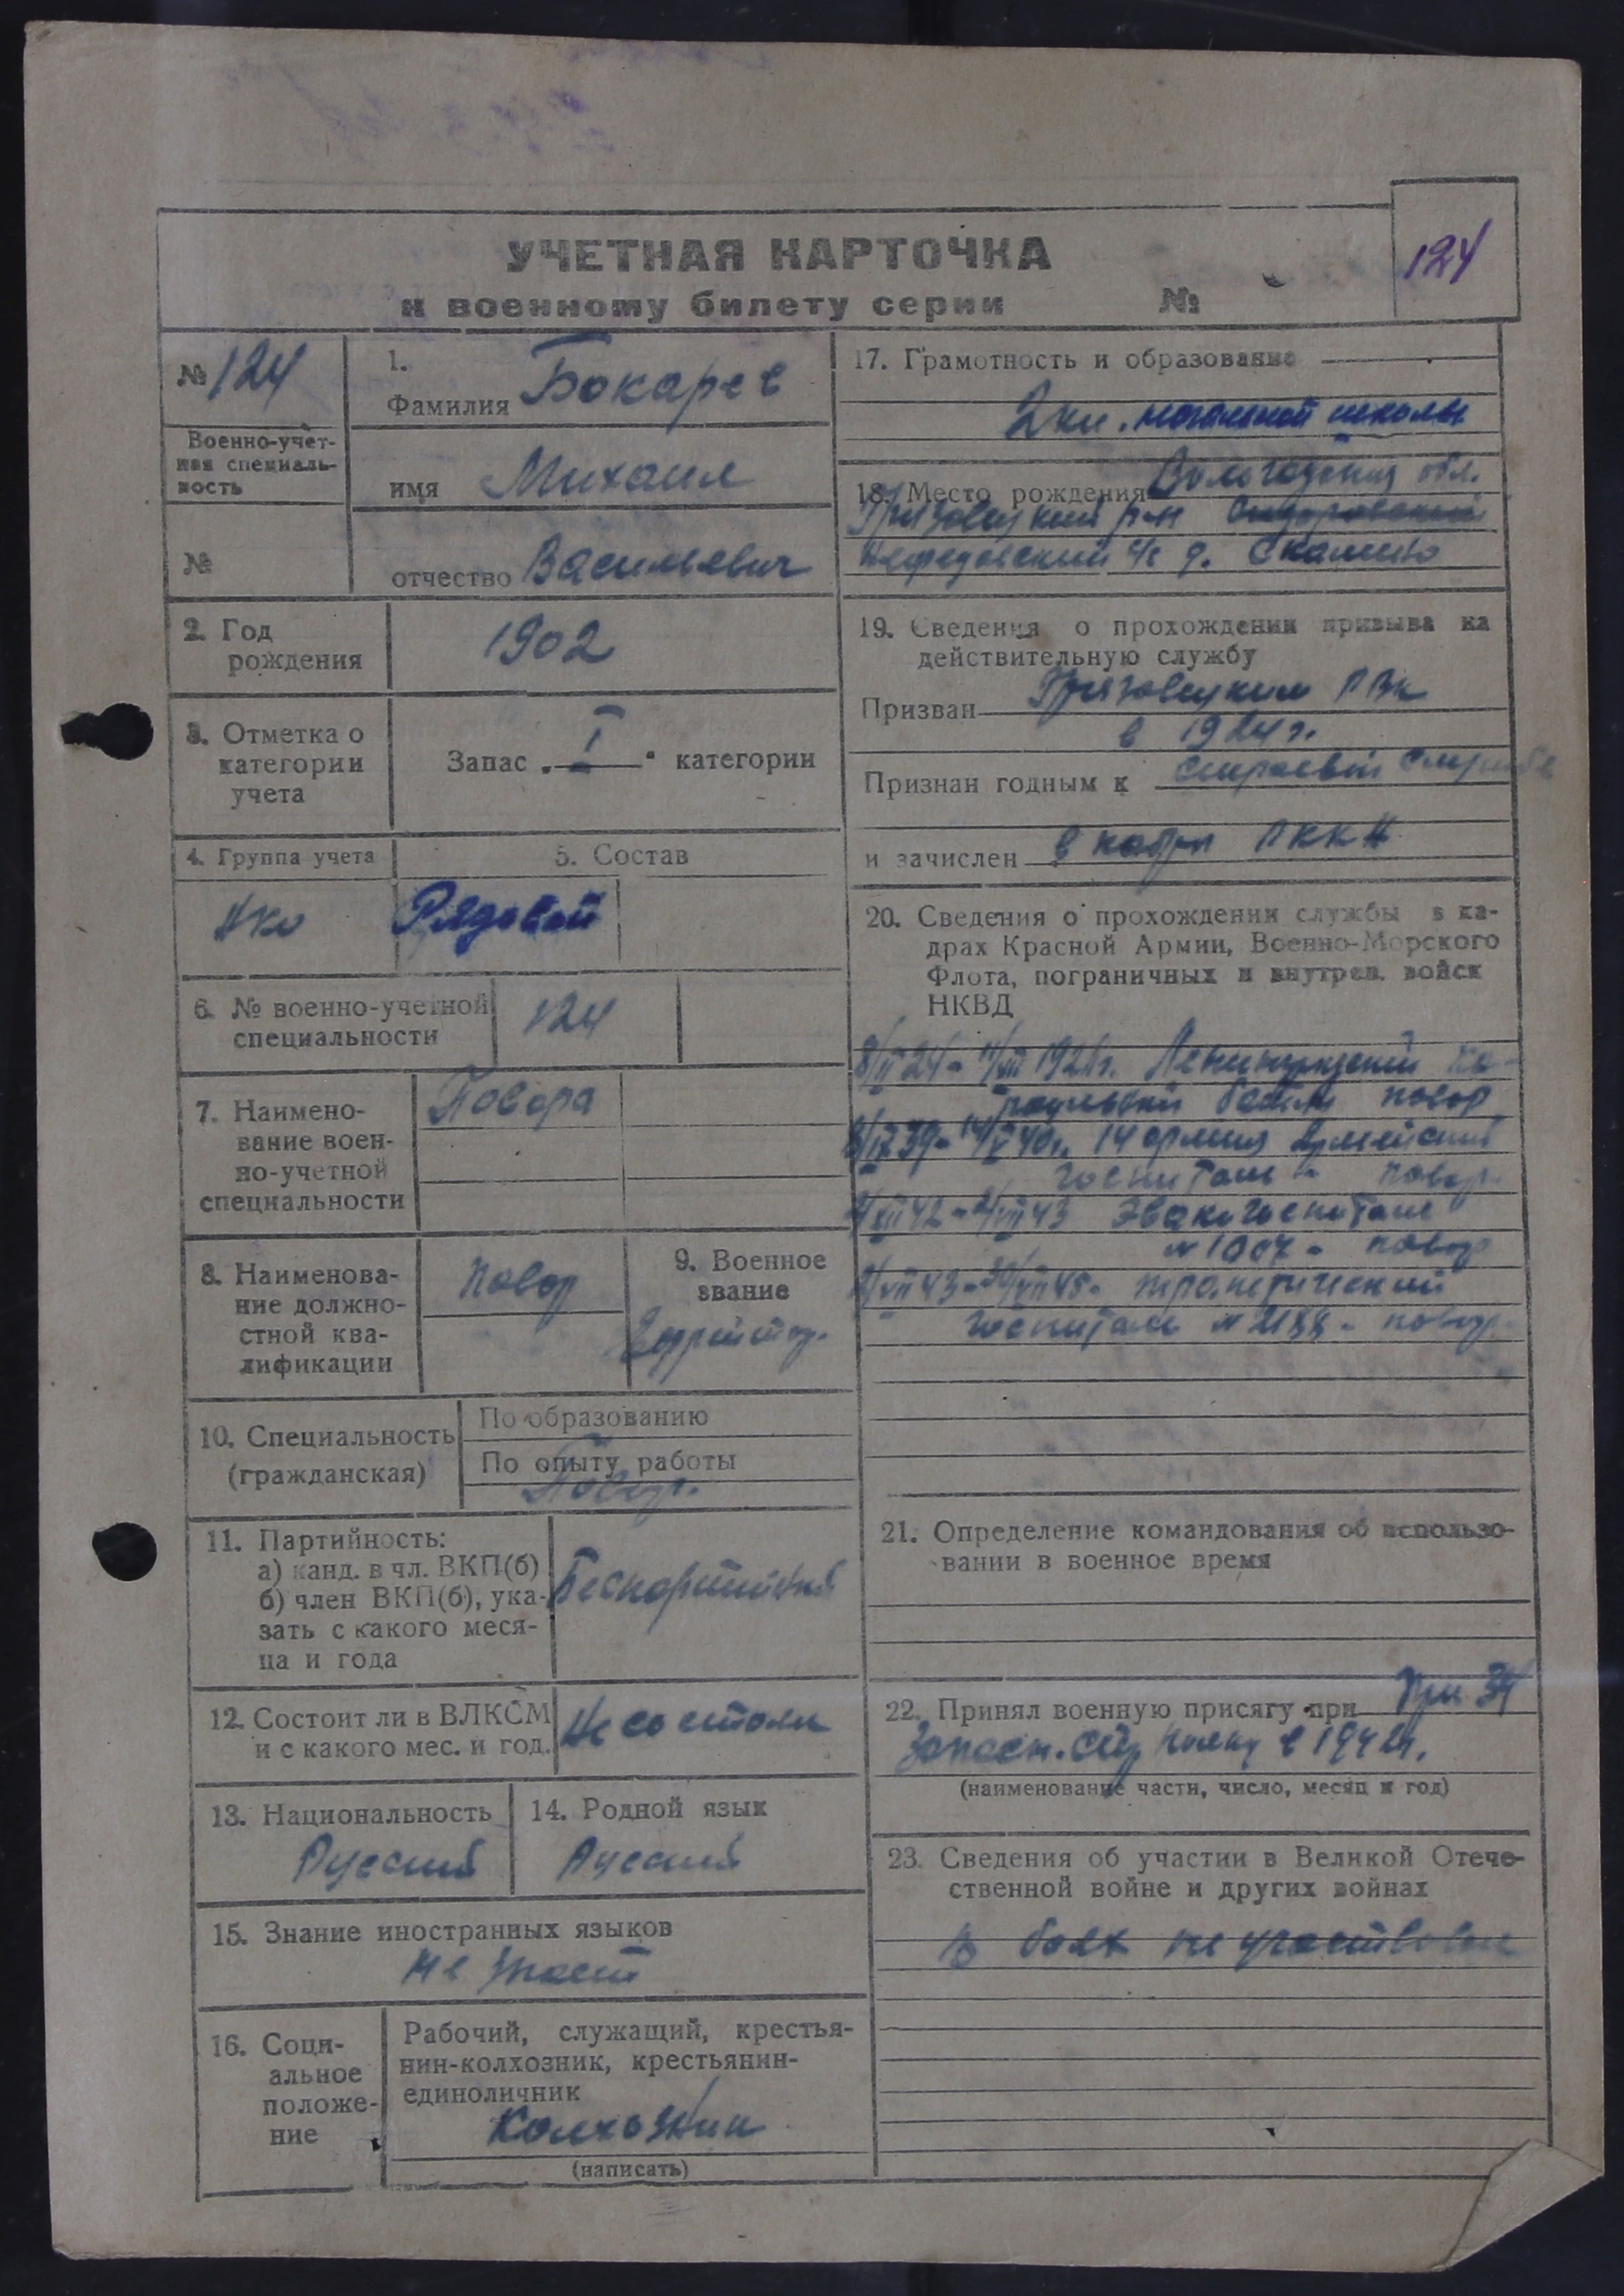 УЧЕТНАЯ КАРТОЧКА
к военному билету серии №
124
№ 124
Военно-учет-
ная специаль-
ность
№
1.
Фамилия Бокарев
имя Михаил
отчество Васильевич
2. Год
рождения
1902
3. Отметка о
категории
учета
Запас „ I " категории
4. Группа учета
5. Состав
Рядовой
6. № военно-учетной
специальности
124
7. Наимено-
вание воен-
но-учетной
специальности
Повора
8. Наименова-
ние должно-
стной ква-
лификации
Повар
9. Военное
звание
Ефрейтор.
10. Специальность
(гражданская)
По образованию
По опыту работы
Повар.
11. Партийность:
а) канд. в чл. ВКП(б)
б) член ВКП(б), ука-
зать с какого меся-
ца и года
Беспартийный
12. Состоит ли в ВЛКСМ
и с какого мес. и год.
Не состоял
13. Национальность
Русский
14. Родной язык
Русский
15. Знание иностранных языков
Не знает
16. Соци-
альное
положе-
ние
Рабочий, служащий, крестья-
нин-колхозник, крестьянин-
единоличник
Колхозник
(написать)
17. Грамотность и образование
2 кл. начальной школы
18. Место рождения Вологодская обл.
Грязовецкий р-н
Нефедовский с/с д. Скалино
19. Сведения о прохождении призыва на
действительную службу
Призван Грязовецким РВК
в 1924 г.
Признан годным к строевой службе
и зачислен в кадры РККА
20. Сведения о прохождении службы в ка-
драх Красной Армии, Военно-Морского
Флота, пограничных и внутрен. войск
НКВД
Ленинградский
повар
14 армия Армейский
госпиталь - повар.
Эвакогоспиталь
- повар
госпиталь - повар.
21. Определение командования об использо-
вании в военное время
22. Принял военную присягу при При
Запасн. стр. полку в 1942 г.
(наименование части, число, месяц и год)
23. Сведения об участии в Великой Отече-
ственной войне и других войнах
В боях не участвовал